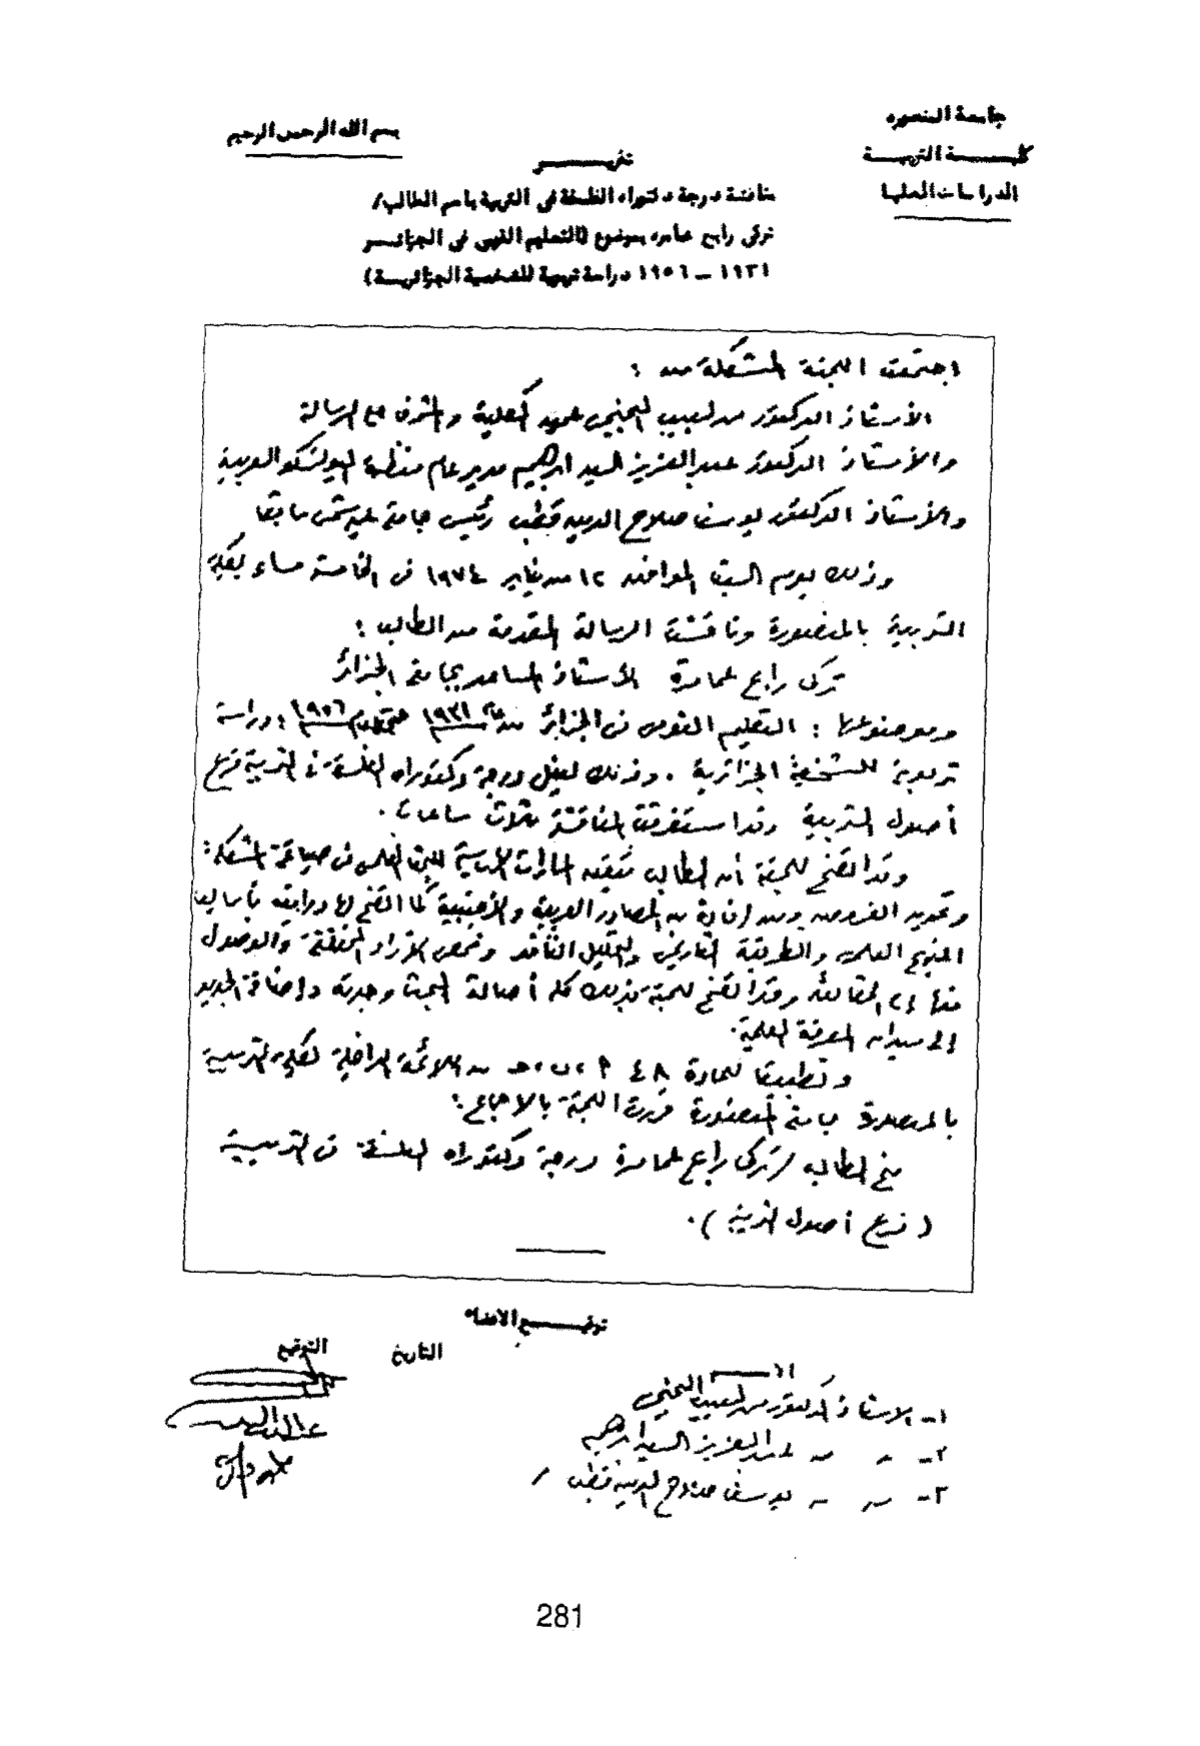 جامعة المنصوره
كليـــة التربيـــة
الدراسات العليا
بسم الله الرحمن الرحيم
تقريـــر
مناقشة درجة دكتوراه الفلسفة فى التربية باسم الطالب/
تركى رابح عمامره بموضوع (التعليم القومى فى الجزائـــر
١٩٣١ – ١٩٥٦ دراسة تربوية للشخصية الجزائريــة)
اجتمعت اللجنة المشكلة من :
الأستاذ الدكتور محمد لبيب النجيحي عميد الكلية والمشرف على الرسالة
والأستاذ الدكتور عبد العزيز السيد ابراهيم مدير عام منظمة اليونسكو العربية
والأستاذ الدكتور يوسف صلاح الدين قطب رئيس جامعة عين شمس سابقا
وذلك يوم السبت الموافق ١٢ من يناير ١٩٧٤ فى الخامسة مساء بكلية
التربية بالمنصورة وناقشت الرسالة المقدمة من الطالب :
تركى رابح عمامرة الأستاذ المساعد بجامعة الجزائر
وموضوعها : التعليم القومى فى الجزائر من ١٩٣١ ١٩٥٦ : دراسة
تربوية للشخصية الجزائرية . وذلك لنيل درجة دكتوراه الفلسفة فى التربية فرع
أصول التربية وقد استغرقت المناقشة ثلاث ساعات .
وقد اتضح للجنة أن الطالب المهارات الأساسية للبحث العلمى فى صياغة المشكلة
وتحديد الفروض ومن إفادة من المصادر العربية والأجنبية كما اتضح لها درايته بأساليب
المنهج العلمى والطريقة التاريخية والتحليل الناقد وتمحيص الآراء المختلفة والوصول
منها إلى الحقائق وقد اتضح للجنة بذلك كله أصالة البحث وجديته وإضافة الجديد
إلى ميدان المعرفة العلمية.
وتطبيقا للمادة ٤٨ من اللائحة الداخلية لكلية التربية
بالمنصورة جامعة المنصورة قررت اللجنة بالاجماع :
منح الطالب / تركى رابح عمامرة درجة دكتوراه الفلسفة فى التربية
( فرع أصول التربية ) .
توقيـــع الاعضاء
الاســـم
التاريخ
التوقيع
١- الاستاذ الدكتور محمد لبيب النجيحي
٢- " " عبد العزيز السيد ابراهيم
٣- " " يوسف صلاح الدين قطب
281